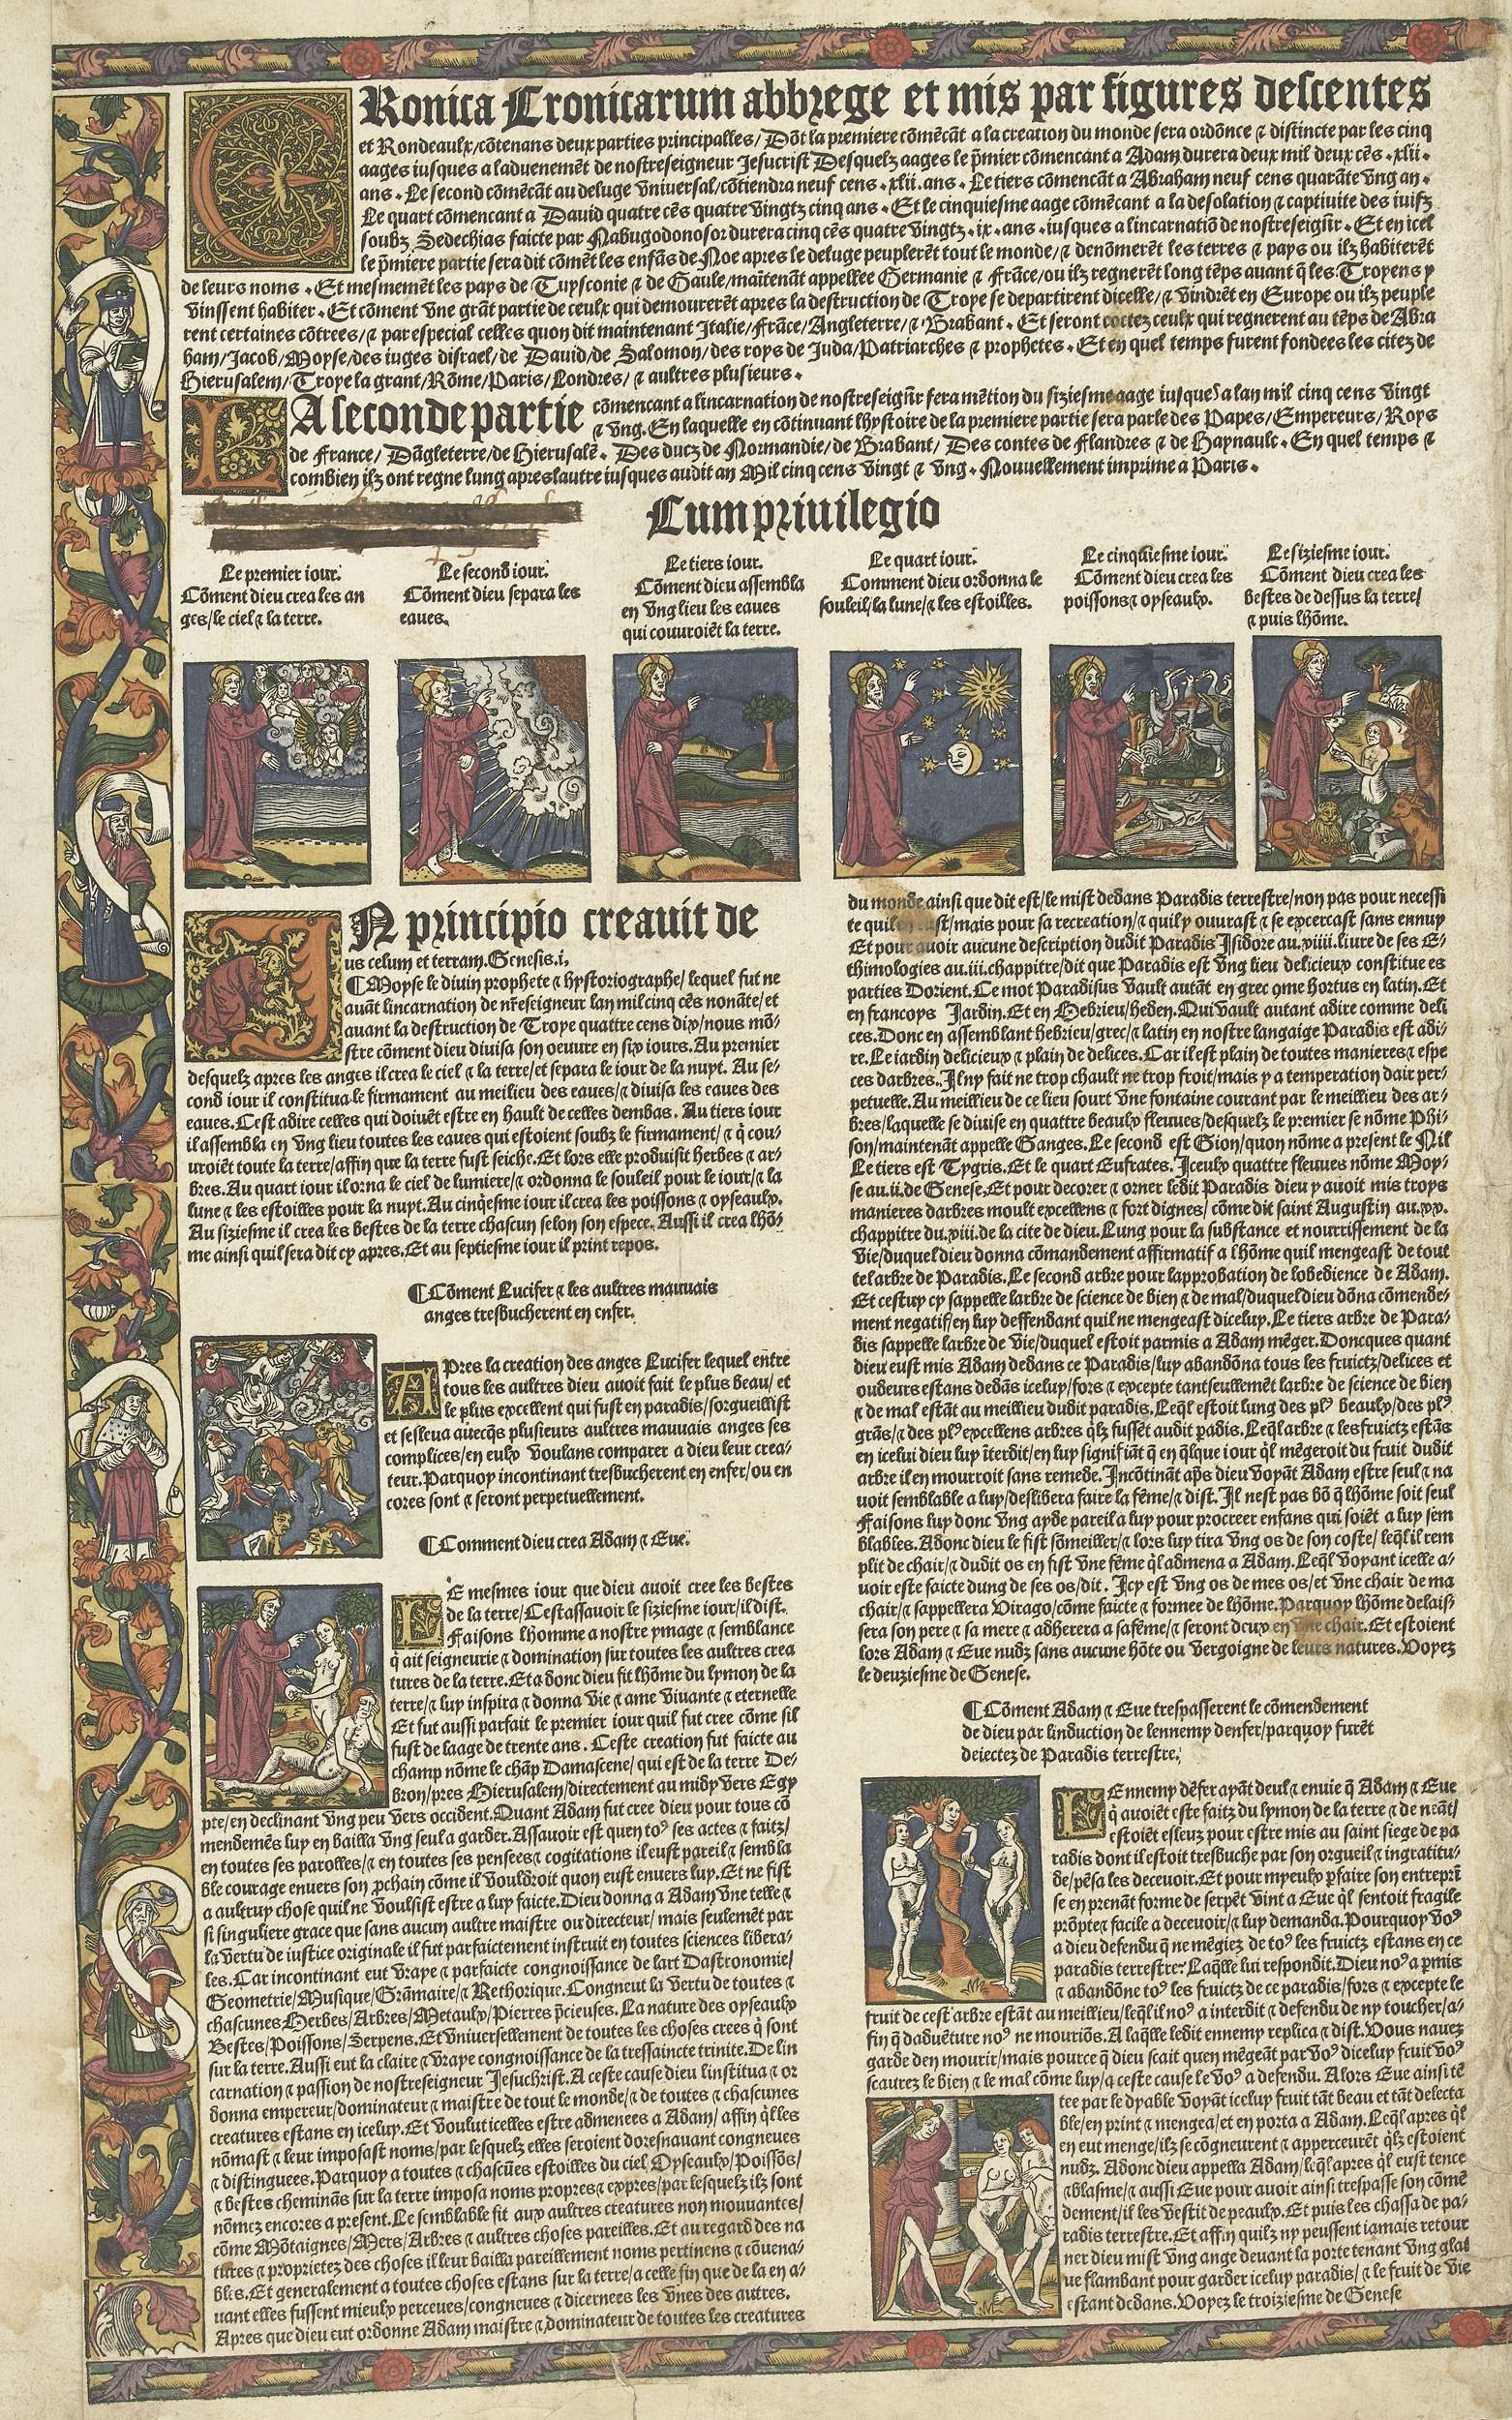 CRonica Cronicarum abbrege et mis par figures descentes
et Rondeaulx/cōtenans deux parties principalles/Dōt la premiere cōmēcāt a la creation du monde sera ordōnce ⁊ distincte par les cinq
aages iusques a laduenemēt de nostreseigneur Jesucrist Desquelz aages le p̄mier cōmencant a Adam durera deux mil deux cēs .xlii.
ans. Le second cōmēcāt au deluge vniuersal/cōtiendra neuf cens .xlii. ans. Le tiers cōmencāt a Abraham neuf cens quarāte vng an.
Le quart cōmencant a Dauid quatre cēs quatre vingtz cinq ans. Et le cinquiesme aage cōmēcant a la desolation ⁊ captiuite des iuifz
soubz Sedechias faicte par Nabugodonosor durera cinq cēs quatre vingtz .ix. ans .iusques a lincarnatiō de nostreseign̄r. Et en icel
le p̄miere partie sera dit cōmēt les enfās de Noe apres le deluge peuplerēt tout le monde/⁊ denōmerēt les terres ⁊ pays ou ilz habiterēt
de leurs noms. Et mesmemēt les pays de Tuysconie ⁊ de Gaule/maītenāt appellee Germanie ⁊ Frāce/ou ilz regnerēt long tēps auant q̄ les Troyens y
vinssent habiter. Et cōment vne grāt partie de ceulx qui demourerēt apres la destruction de Troye se departirent dicelle/⁊ vindrēt en Europe ou ilz peuple
rent certaines cōtrees/⁊ par especial celles quon dit maintenant Italie/Frāce/Angleterre/⁊ Brabant. Et seront ceulx qui regnerent au tēps de Abra
ham/Jacob/Moyse/des iuges disrael/de Dauid/de Salomon/des roys de Juda/Patriarches ⁊ prophetes. Et en quel temps furent fondees les citez de
Hierusalem/Troye la grant/Rōme/Paris/Londres/⁊ aultres plusieurs.
LA seconde partie cōmencant a lincarnation de nostreseign̄r fera mētion du siziesme aage iusques a lan mil cinq cens vingt
⁊ vng. En laquelle en cōtinuant lhystoire de la premiere partie sera parle des Papes/Empereurs/Roys
de France/Dāgleterre/de Hierusalē. Des ducz de Normandie/de Brabant/Des contes de Flandres ⁊ de Haynault. En quel temps ⁊
combien ilz ont regne lung apres lautre iusques audit an Mil cinq cens vingt ⁊ vng. Nouuellement imprime a Paris.
Cum priuilegio
Le premier iour.
Cōment dieu crea les an
ges/le ciel ⁊ la terre.
Le second iour.
Cōment dieu separa les
eaues.
Le tiers iour.
Cōment dieu assembla
en vng lieu les eaues
qui couuroiēt la terre.
Le quart iour.
Comment dieu ordonna le
souleil/la lune/⁊ les estoilles.
Le cinquiesme iour.
Cōment dieu crea les
poissons ⁊ oyseaulx.
Le siziesme iour.
Cōment dieu crea les
bestes de dessus la terre/
⁊ puis lhōme.
IN principio creauit de
us celum et terram. Genesis.i.
¶Moyse le diuin prophete ⁊ hystoriographe/lequel fut ne
auāt lincarnation de nr̄eseigneur lan mil cinq cēs nonāte/et
auant la destruction de Troye quattre cens dix/nous mō-
stre cōment dieu diuisa son oeuure en six iours. Au premier
desquelz apres les anges il crea le ciel ⁊ la terre/et separa le iour de la nuyt. Au se-
cond iour il constitua le firmament au meilieu des eaues/⁊ diuisa les eaues des
eaues. Cest adire celles qui doiuēt estre en hault de celles dembas. Au tiers iour
il assembla en vng lieu toutes les eaues qui estoient soubz le firmament/⁊ q̄ cou-
uroiēt toute la terre/affin que la terre fust seiche. Et lors elle produisit herbes ⁊ ar-
bres. Au quart iour il orna le ciel de lumiere/⁊ ordonna le souleil pour le iour/⁊ la
lune ⁊ les estoilles pour la nuyt. Au cinq̄esme iour il crea les poissons ⁊ oyseaulx.
Au siziesme il crea les bestes de la terre chascun selon son espece. Aussi il crea lhō-
me ainsi quil sera dit cy apres. Et au septiesme iour il print repos.
¶Cōment Lucifer ⁊ les aultres mauuais
anges tresbucherent en enfer.
APres la creation des anges Lucifer lequel entre
tous les aultres dieu auoit fait le plus beau/et
le plus excellent qui fust en paradis/sorgueillist
et sesleua auecq̄s plusieurs aultres mauuais anges ses
complices/en eulx voulans comparer a dieu leur crea-
teur. Parquoy incontinant tresbucherent en enfer/ou en
cores sont ⁊ seront perpetuellement.
¶Comment dieu crea Adam ⁊ Eue.
LE mesmes iour que dieu auoit cree les bestes
de la terre/Cestassauoir le siziesme iour/il dist.
Faisons lhomme a nostre ymage ⁊ semblance
q̄ ait seigneurie ⁊ domination sur toutes les aultres crea
tures de la terre. Et a donc dieu fit lhōme du lymon de la
terre/⁊ luy inspira ⁊ donna vie ⁊ ame viuante ⁊ eternelle
Et fut aussi parfait le premier iour quil fut cree cōme sil
fust de laage de trente ans. Ceste creation fut faicte au
champ nōme le chāp Damascene/qui est de la terre De-
bron/pres Hierusalem/directement au midy vers Egy
pte/en declinant vng peu vers occident. Quant Adam fut cree dieu pour tous cō
mendemēs luy en bailla vng seul a garder. Assauoir est quen toꝰ ses actes ⁊ faitz/
en toutes ses parolles/⁊ en toutes ses pensees ⁊ cogitations il eust pareil ⁊ sembla
ble courage enuers son ꝓchain cōme il vouldroit quon eust enuers luy. Et ne fist
a aultruy chose quil ne voulsist estre a luy faicte. Dieu donna a Adam vne telle ⁊
si singuliere grace que sans aucun aultre maistre ou directeur/mais seulemēt par
la vertu de iustice originale il fut parfaictement instruit en toutes sciences libera-
les. Car incontinant eut vraye ⁊ parfaicte congnoissance de lart Dastronomie/
Geometrie/Musique/Grāmaire/⁊ Rethorique. Congneut la vertu de toutes ⁊
chascunes Herbes/Arbres/Metaulx/Pierres p̄cieuses. La nature des oyseaulx
Bestes/Poissons/Serpens. Et vniuersellement de toutes les choses crees q̄ sont
sur la terre. Aussi eut la claire ⁊ vraye congnoissance de la tressaincte trinite. De lin
carnation ⁊ passion de nostreseigneur Jesuchrist. A ceste cause dieu linstitua ⁊ or
donna empereur/dominateur ⁊ maistre de tout le monde/⁊ de toutes ⁊ chascunes
creatures estans en iceluy. Et voulut icelles estre admenees a Adam/affin q̄l les
nōmast ⁊ leur imposast noms/par lesquelz elles seroient doresnauant congneues
⁊ distinguees. Parquoy a toutes ⁊ chascūes estoilles du ciel Oyseaulx/Poissōs/
⁊ bestes cheminās sur la terre imposa noms propres ⁊ expres/par lesquelz ilz sont
nōmez encores a present. Le semblable fit aux aultres creatures non mouuantes/
cōme Mōtaignes/Mers/Arbres ⁊ aultres choses pareilles. Et au regard des na
tures ⁊ proprietez des choses il leur bailla pareillement noms pertinens ⁊ cōuena-
bles. Et generalement a toutes choses estans sur la terre/a celle fin que de la en a-
uant elles fussent mieulx perceues/congneues ⁊ dicernees les vnes des autres.
Apres que dieu eut ordonne Adam maistre ⁊ dominateur de toutes les creatures
du monde ainsi que dit est/le mist dedans Paradis terrestre/non pas pour necessi
te quil en eust/mais pour sa recreation/⁊ quil y ouurast ⁊ se excercast sans ennuy
Et pour auoir aucune description dudit Paradis Isidore au.xiiii.liure de ses E-
thimologies au.iii.chappitre/dit que Paradis est vng lieu delicieux constitue es
parties Dorient. Ce mot Paradisus vault autāt en grec ꝯme hortus en latin. Et
en francoys Jardin. Et en Hebrieu/heden. Qui vault autant adire comme deli
ces. Donc en assemblant hebrieu/grec/⁊ latin en nostre langaige Paradis est adi-
re. Le iardin delicieux ⁊ plain de delices. Car il est plain de toutes manieres ⁊ espe
ces darbres. Il ny fait ne trop chault ne trop froit/mais y a temperation dair per-
petuelle. Au meillieu de ce lieu sourt vne fontaine courant par le meillieu des ar-
bres/laquelle se diuise en quattre beaulx fleuues/desquelz le premier se nōme Phi-
son/maintenāt appelle Ganges. Le second est Gion/quon nōme a present le Nil
Le tiers est Tygris. Et le quart Eufrates. Iceulx quattre fleuues nōme Moy-
se au.ii.de Genese. Et pour decorer ⁊ orner ledit Paradis dieu y auoit mis troys
manieres darbres moult excellens ⁊ fort dignes/cōme dit saint Augustin au.xx.
chappitre du.xiii.de la cite de dieu. Lung pour la substance et nourrissement de la
vie/duquel dieu donna cōmandement affirmatif a lhōme quil mengeast de tout
tel arbre de Paradis. Le second arbre pour lapprobation de lobedience de Adam.
Et cestuy cy sappelle larbre de science de bien ⁊ de mal/duquel dieu dōna cōmende-
ment negatif/en luy deffendant quil ne mengeast diceluy. Le tiers arbre de Para-
dis sappelle larbre de vie/duquel estoit parmis a Adam mēger. Doncques quant
dieu eust mis Adam dedans ce Paradis/luy abandōna tous les fruictz/delices et
oudeurs estans dedās iceluy/fors ⁊ excepte tantseullemēt larbre de science de bien
⁊ de mal estāt au meillieu dudit paradis. Leq̄l estoit lung des plꝰ beaulx/des plꝰ
grās/⁊ des plꝰ excellens arbres q̄lz fussēt audit padis. Leq̄l arbre ⁊ les fruictz estās
en icelui dieu luy īterdit/en luy signifiāt q̄ en q̄lque iour q̄l mēgeroit du fruit dudit
arbre il en mourroit sans remede. Incōtināt ap̄s dieu voyāt Adam estre seul ⁊ na
uoit semblable a luy/deslibera faire la fēme/⁊ dist. Il nest pas bō q̄ lhōme soit seul
Faisons luy donc vng ayde pareil a luy pour procreer enfans qui soiēt a luy sem
blables. Adonc dieu le fist sōmeiller/⁊ lors luy tira vng os de son coste/leq̄l il rem
plit de chair/⁊ dudit os en fist vne fēme q̄l admena a Adam. Leq̄l voyant icelle a-
uoir este faicte dung de ses os/dit. Icy est vng os de mes os/et vne chair de ma
chair/⁊ sappellera Virago/cōme faicte ⁊ formee de lhōme. Parquoy lhōme delais
sera son pere ⁊ sa mere ⁊ adherera a sa fēme/⁊ seront deux en vne chair. Et estoient
lors Adam ⁊ Eue nudz sans aucune hōte ou vergoigne de leurs natures. Voyez
le deuziesme de Genese.
¶Cōment Adam ⁊ Eue trespasserent le cōmendement
de dieu par linduction de lennemy denfer/parquoy furēt
deiectez de Paradis terrestre.
LEnnemy dēfer ayāt deul ⁊ enuie q̄ Adam ⁊ Eue
q̄ auoiēt este faitz du lymon de la terre ⁊ de neāt/
estoiēt esleuz pour estre mis au saint siege de pa
radis dont il estoit tresbuche par son orgueil ⁊ ingratitu-
de/pēsa les deceuoir. Et pour myeulx ꝑfaire son entreprī
se en prenāt forme de serpēt vint a Eue q̄l sentoit fragile
prōpte ⁊ facile a deceuoir/⁊ luy demanda. Pourquoy voꝰ
a dieu defendu q̄ ne mēgiez de toꝰ les fruictz estans en ce
paradis terrestre? Laq̄lle lui respondit. Dieu noꝰ a ꝑmis
⁊ abandōne toꝰ les fruictz de ce paradis/fors ⁊ excepte le
fruit de cest arbre estāt au meillieu/leq̄l il noꝰ a interdit ⁊ defendu de ny toucher/a-
fin q̄ daduēture noꝰ ne mouriōs. A laq̄lle ledit ennemy replica ⁊ dist. Vous nauez
garde den mourir/mais pource q̄ dieu scait quen mēgeāt par voꝰ diceluy fruit voꝰ
scaurez le bien ⁊ le mal cōme luy/a ceste cause le voꝰ a defendu. Alors Eue ainsi tē
tee par le dyable voyāt iceluy fruit tāt beau et tāt delecta
ble/en print ⁊ mengea/et en porta a Adam. Leq̄l apres q̄l
en eut menge/ilz se cōgneurent ⁊ apperceurēt q̄lz estoient
nudz. Adonc dieu appella Adam/leq̄l apres q̄l eust tence
⁊ blasme/⁊ aussi Eue pour auoir ainsi trespasse son cōmē
dement/il les vestit de peaulx. Et puis les chassa de pa-
radis terrestre. Et affin quilz ny peussent iamais retour
ner dieu mist vng ange deuant la porte tenant vng glai
ue flambant pour garder iceluy paradis/⁊ le fruit de vie
estant dedans. Voyez le troiziesme de Genese